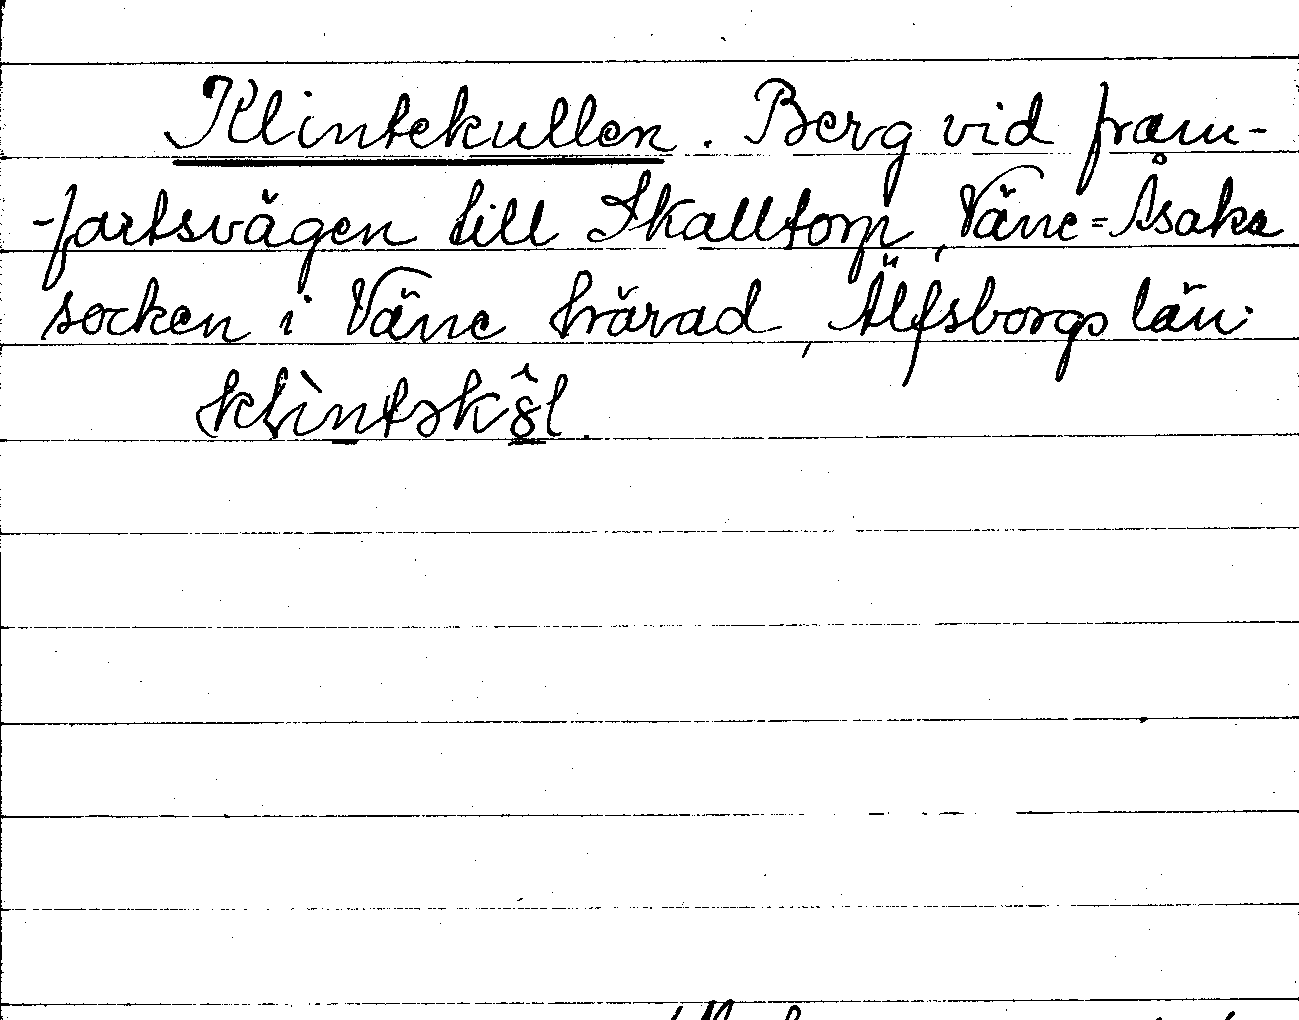 Klintekullen. Berg vid fram-
-fartsvägen till Skalltorp, Väne-Åsaka
socken i Väne härad, Älfsborgs län.